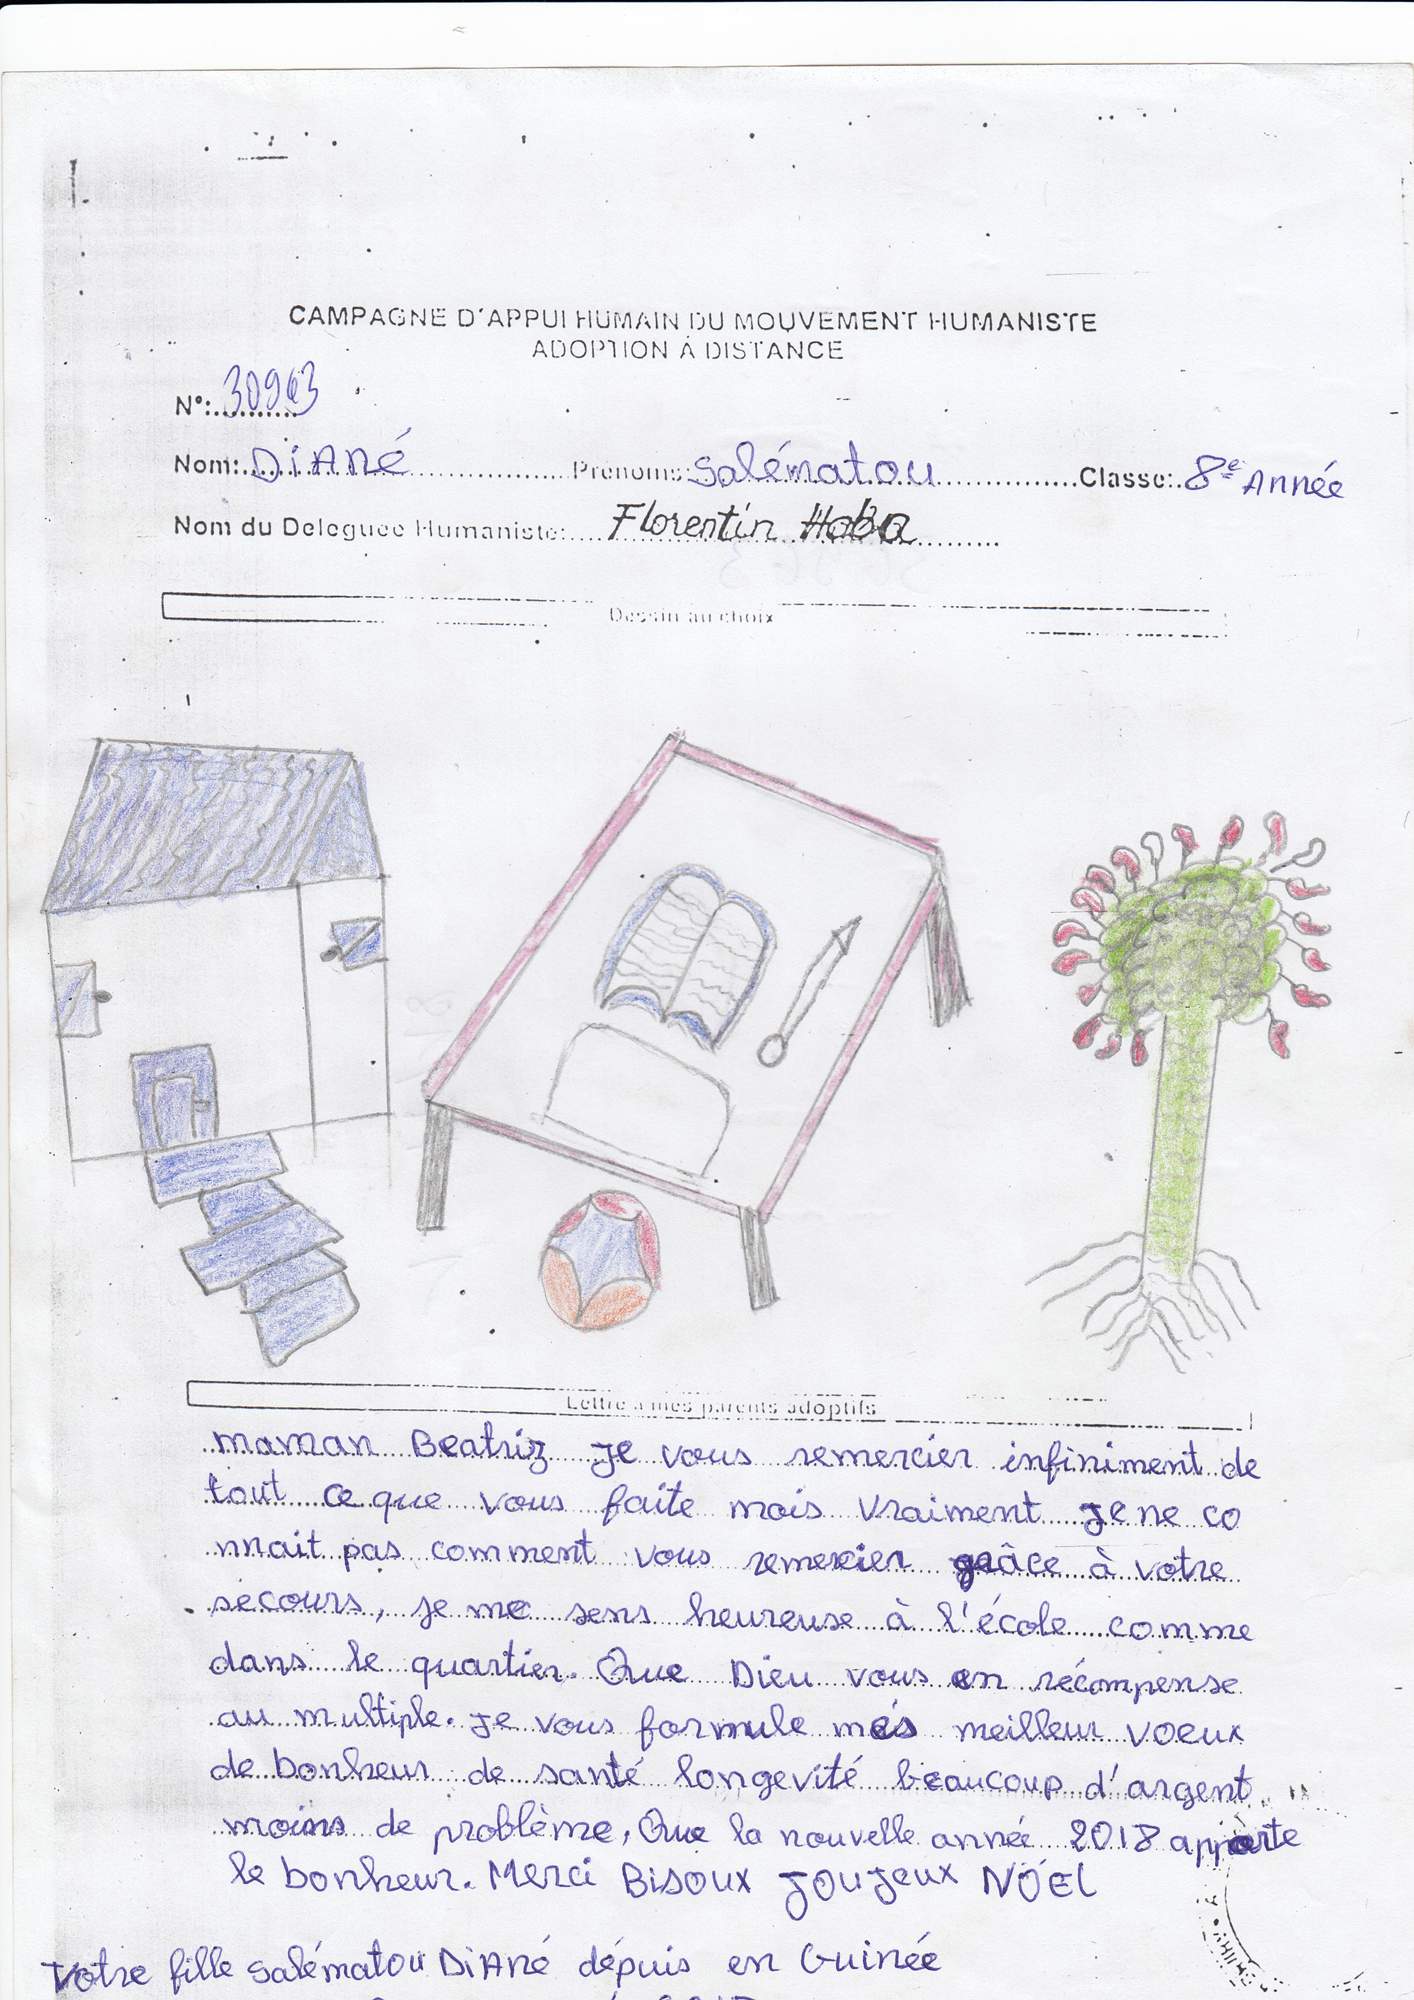 CAMPAGNE D'APPUI HUMAIN DU MOUVEMENT HUMANISTE
ADOPTION À DISTANCE
N°: 30963
Nom: DiANé Prénoms: Salématou Classe: 8e Année
Nom du Deleguee Humaniste: Florentin Haba
Dessin au choix
Lettre a mes parents adoptifs
maman Beatriz Je vous remercier infiniment de
tout ce que vous faite mais vraiment Je ne co
nnait pas comment vous remercier grâce à votre
secours, je me sens heureuse à l'école comme
dans le quartier. Que Dieu vous en récompense
au multiple. Je vous formule més meilleur voeux
de bonheur de santé longevité beaucoup d'argent
moins de problème, Que la nouvelle année 2018 apporte
le bonheur. Merci Bisoux JouJeux NÓEL
Votre fille Salématou DiANé dépuis en Guinée